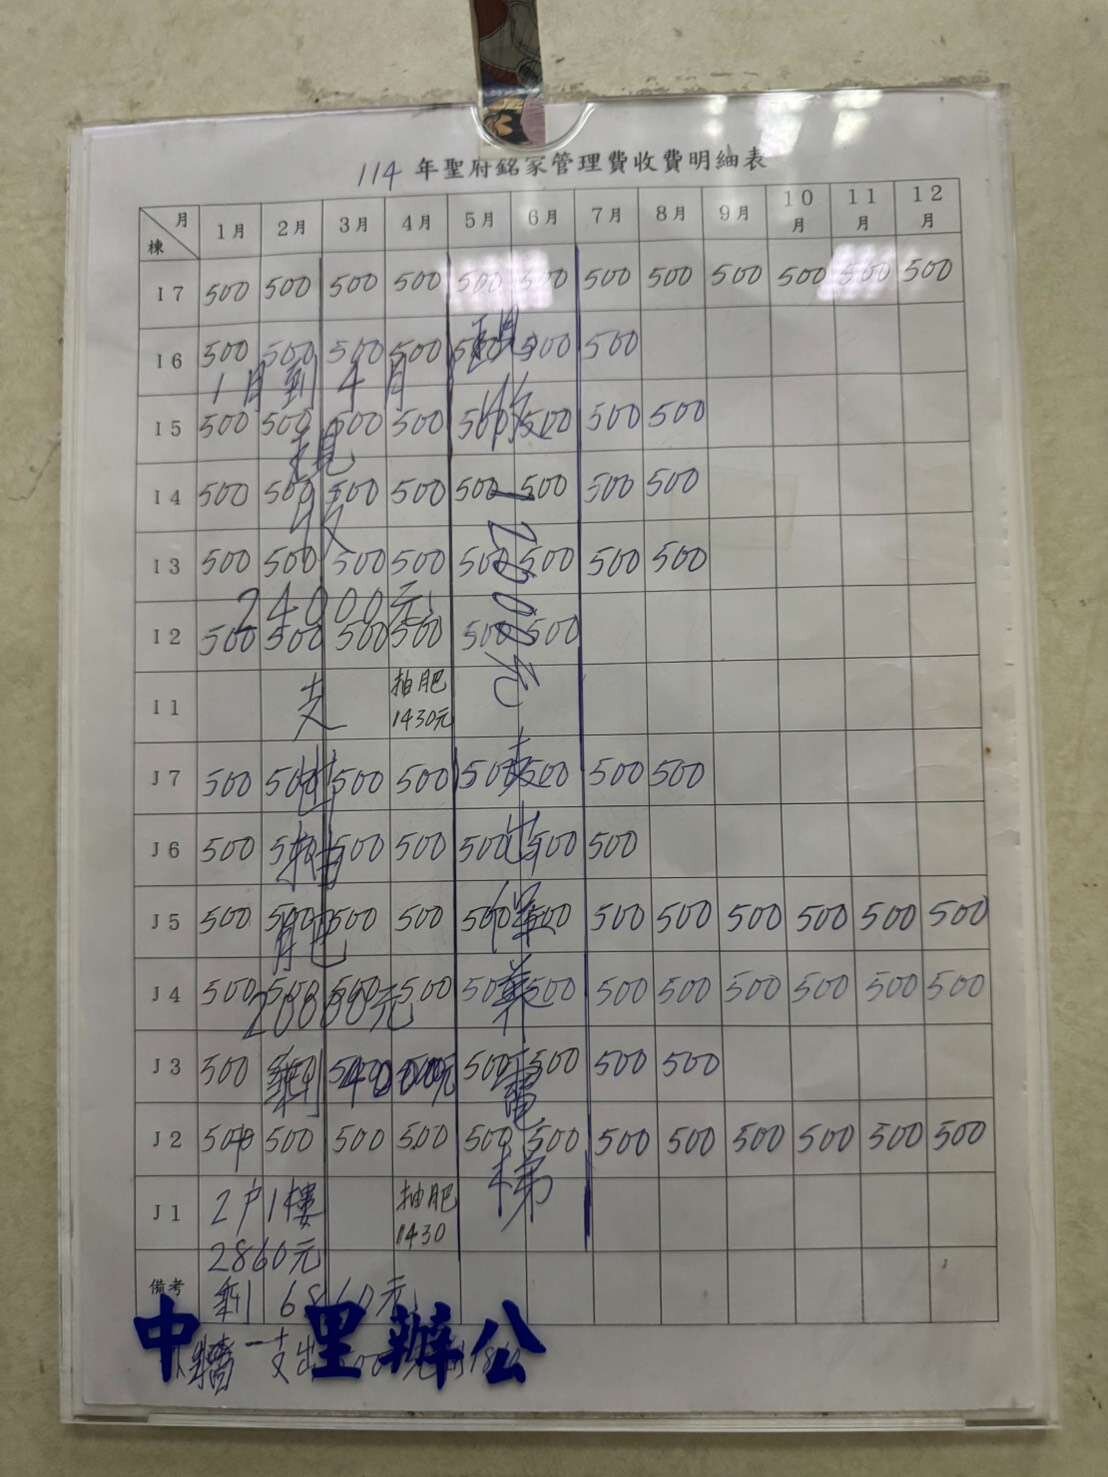 114年聖府銘家管理費收費明細表
月 棟 1月 2月 3月 4月 5月 6月 7月 8月 9月 10月 11月 12月
I7 500 500 500 500 500 500 500 500 500 500 500 500
I6 500 500 500 500 500 500 500
1月到4月
I5 500 500 500 500 500 500 500 500
現
I4 500 500 500 500 500 500 500 500
收
I3 500 500 500 500 500 500 500 500
24000元
I2 500 500 500 500 500 500
I1 支 抽肥1430元
J7 500 500 500 500 500 500 500 500
出
J6 500 500 500 500 500 500 500
抽
J5 500 500 500 500 500 500 500 500 500 500 500 500
肥
J4 500 500 500 500 500 500 500 500 500 500 500 500
20000元
J3 500 500 500 500 500 500 500 500
剩4000元
J2 500 500 500 500 500 500 500 500 500 500 500 500
J1 2户1樓 抽肥1430
2860元
備考 剩6860元
現收12000元支出保養電梯
牆 支出
中 里辦公